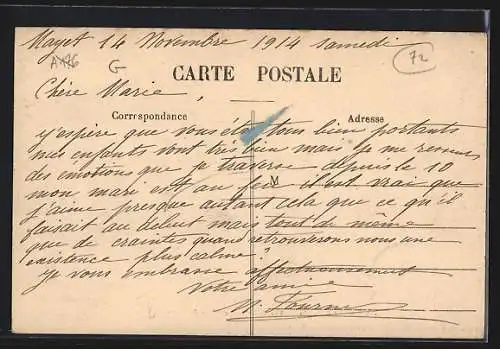 Mayet 14 Novembre 1914 samedi
72
A476
G
CARTE POSTALE
Chère Marie,
Correspondance
Adresse
j'espère que vous êtes tous bien portants
mes enfants vont très bien mais je me ressens
des émotions que je traverse depuis le 10
M
mon mari est au feu il est vrai que
j'aime presque autant cela que ce qu'il
faisait au début mais tout de même
que de craintes quand retrouverons nous une
existence plus calme ?
je vous embrasse affectueusement
Votre amie